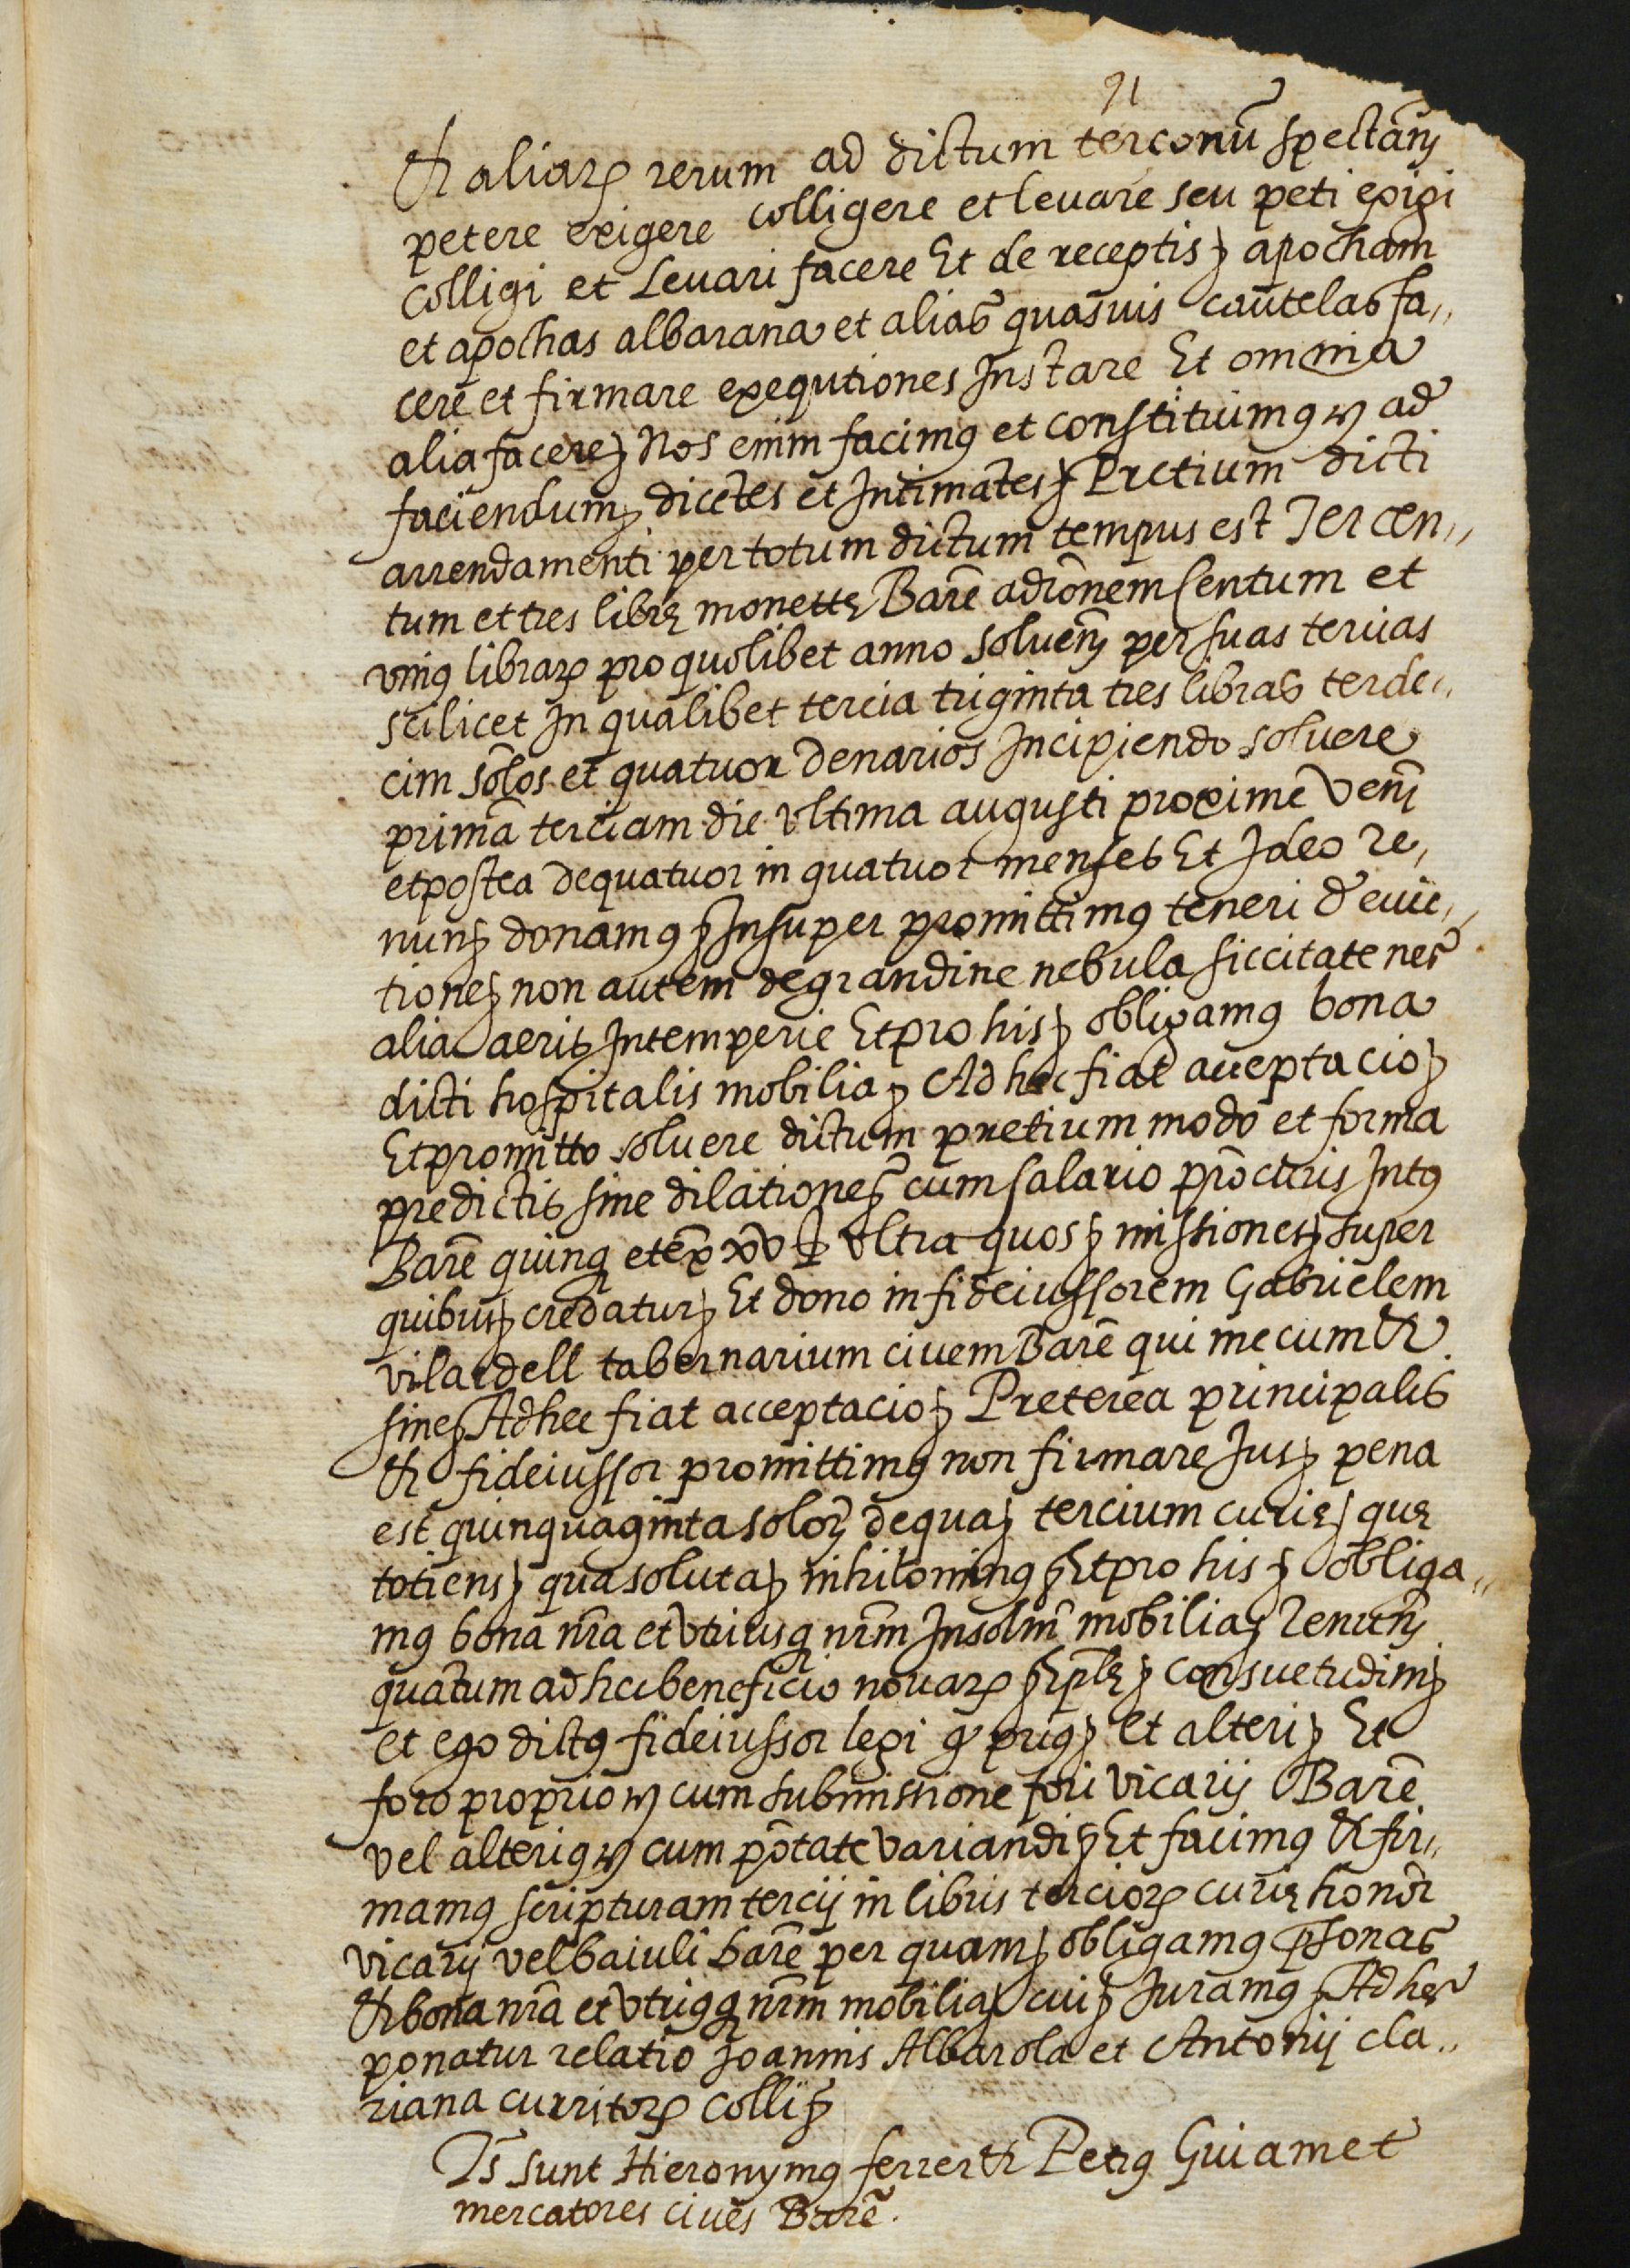 91
Et aliarꝝ rerum ad dictum terconū spectāñ
petere exigere colligere et leuare seu peti exigi
colligi et Leuari facere Et de receptis ꝫ apocham
et apochas albarana et alias quasuis cautelas fa„
cere et firmare exequtiones Instare Et omnia
alia facere ꝫ Nos enim facimꝰ et constituimꝰ ꝫ ad
faciendum ꝫ dicētes et Intimātes ꝫ Pretium dicti
arrendamenti per totum dictum tempus est Tercen„
tum et tres librę monetę Barē ad rōnem Centum et
vniꝰ librarꝝ pro quolibet anno soluēñ per suas tercias
scilicet In qualibet tercia triginta tres libras terde„
cim sōlos et quatuor denarios Incipiendo soluere
primā terciam die vltima augusti proxime veñ
et postea de quatuor in quatuor menses Et Ideo re„
nunꝫ donamꝰ ꝫ Insuper promittimꝰ teneri de euic„
tione ꝫ non autem de grandine nebula siccitate nec
alia aeris Intemperie Et pro his ꝫ obligamꝰ bona
dicti hospitalis mobilia ꝫ Ad hęc fiat acceptacio ꝫ
Et promitto soluere dictum pretium modo et forma
predictis sine dilatione ꝫ cum salario prōcuris Intꝰ
Barē quinqꝫ et ex̄ xv ꝫ vltra quos ꝫ missiones ꝫ super
quibus ꝫ credatur ꝫ Et dono in fideiussorem Gabrielem
vilardell tabernarium ciuem Barē qui mecum Et
sine ꝫ Ad hec fiat acceptacio ꝫ Preterea principalis
Et fideiussor promittimꝰ non firmare Jus ꝫ pena
est quinquaginta solorꝝ de qua ꝫ tercium curię ꝫ quę
totiens ꝫ qua soluta ꝫ nihilominꝰ ꝫ Et pro his ꝫ obliga„
mꝰ bona nr̄a et vtriusqꝫ nr̄m Insolm̄ mobilia ꝫ Renunꝫ
quātum ad hec beneficio nouarꝝ ꝫ Epłę ꝫ consuetudini ꝫ
et ego dictꝰ fideiussor legi qꝫ priꝰ ꝫ et alteri ꝫ Et
foro proprio ꝫ cum submissione fori vicarij Barē
vel alteriꝰ ꝫ cum pōtate variandi ꝫ Et facimꝰ Et fir„
mamꝰ scripturam tercij in libris terciorꝝ curię honōr
vicarij vel baiuli Barē per quam ꝫ obligamꝰ ꝑsonas
Et bona nr̄a et vtriꝰqꝫ nr̄m mobilia ꝫ cui ꝫ Juramꝰ ꝫ Ad hęc
ponatur relatio Joannis Albarola et Antonij cla„
riana curritorꝝ colli ꝫ
Ts̄ sunt Hieronymꝰ ferrer Et Petrꝰ Guiamet
mercatores ciues Barē.